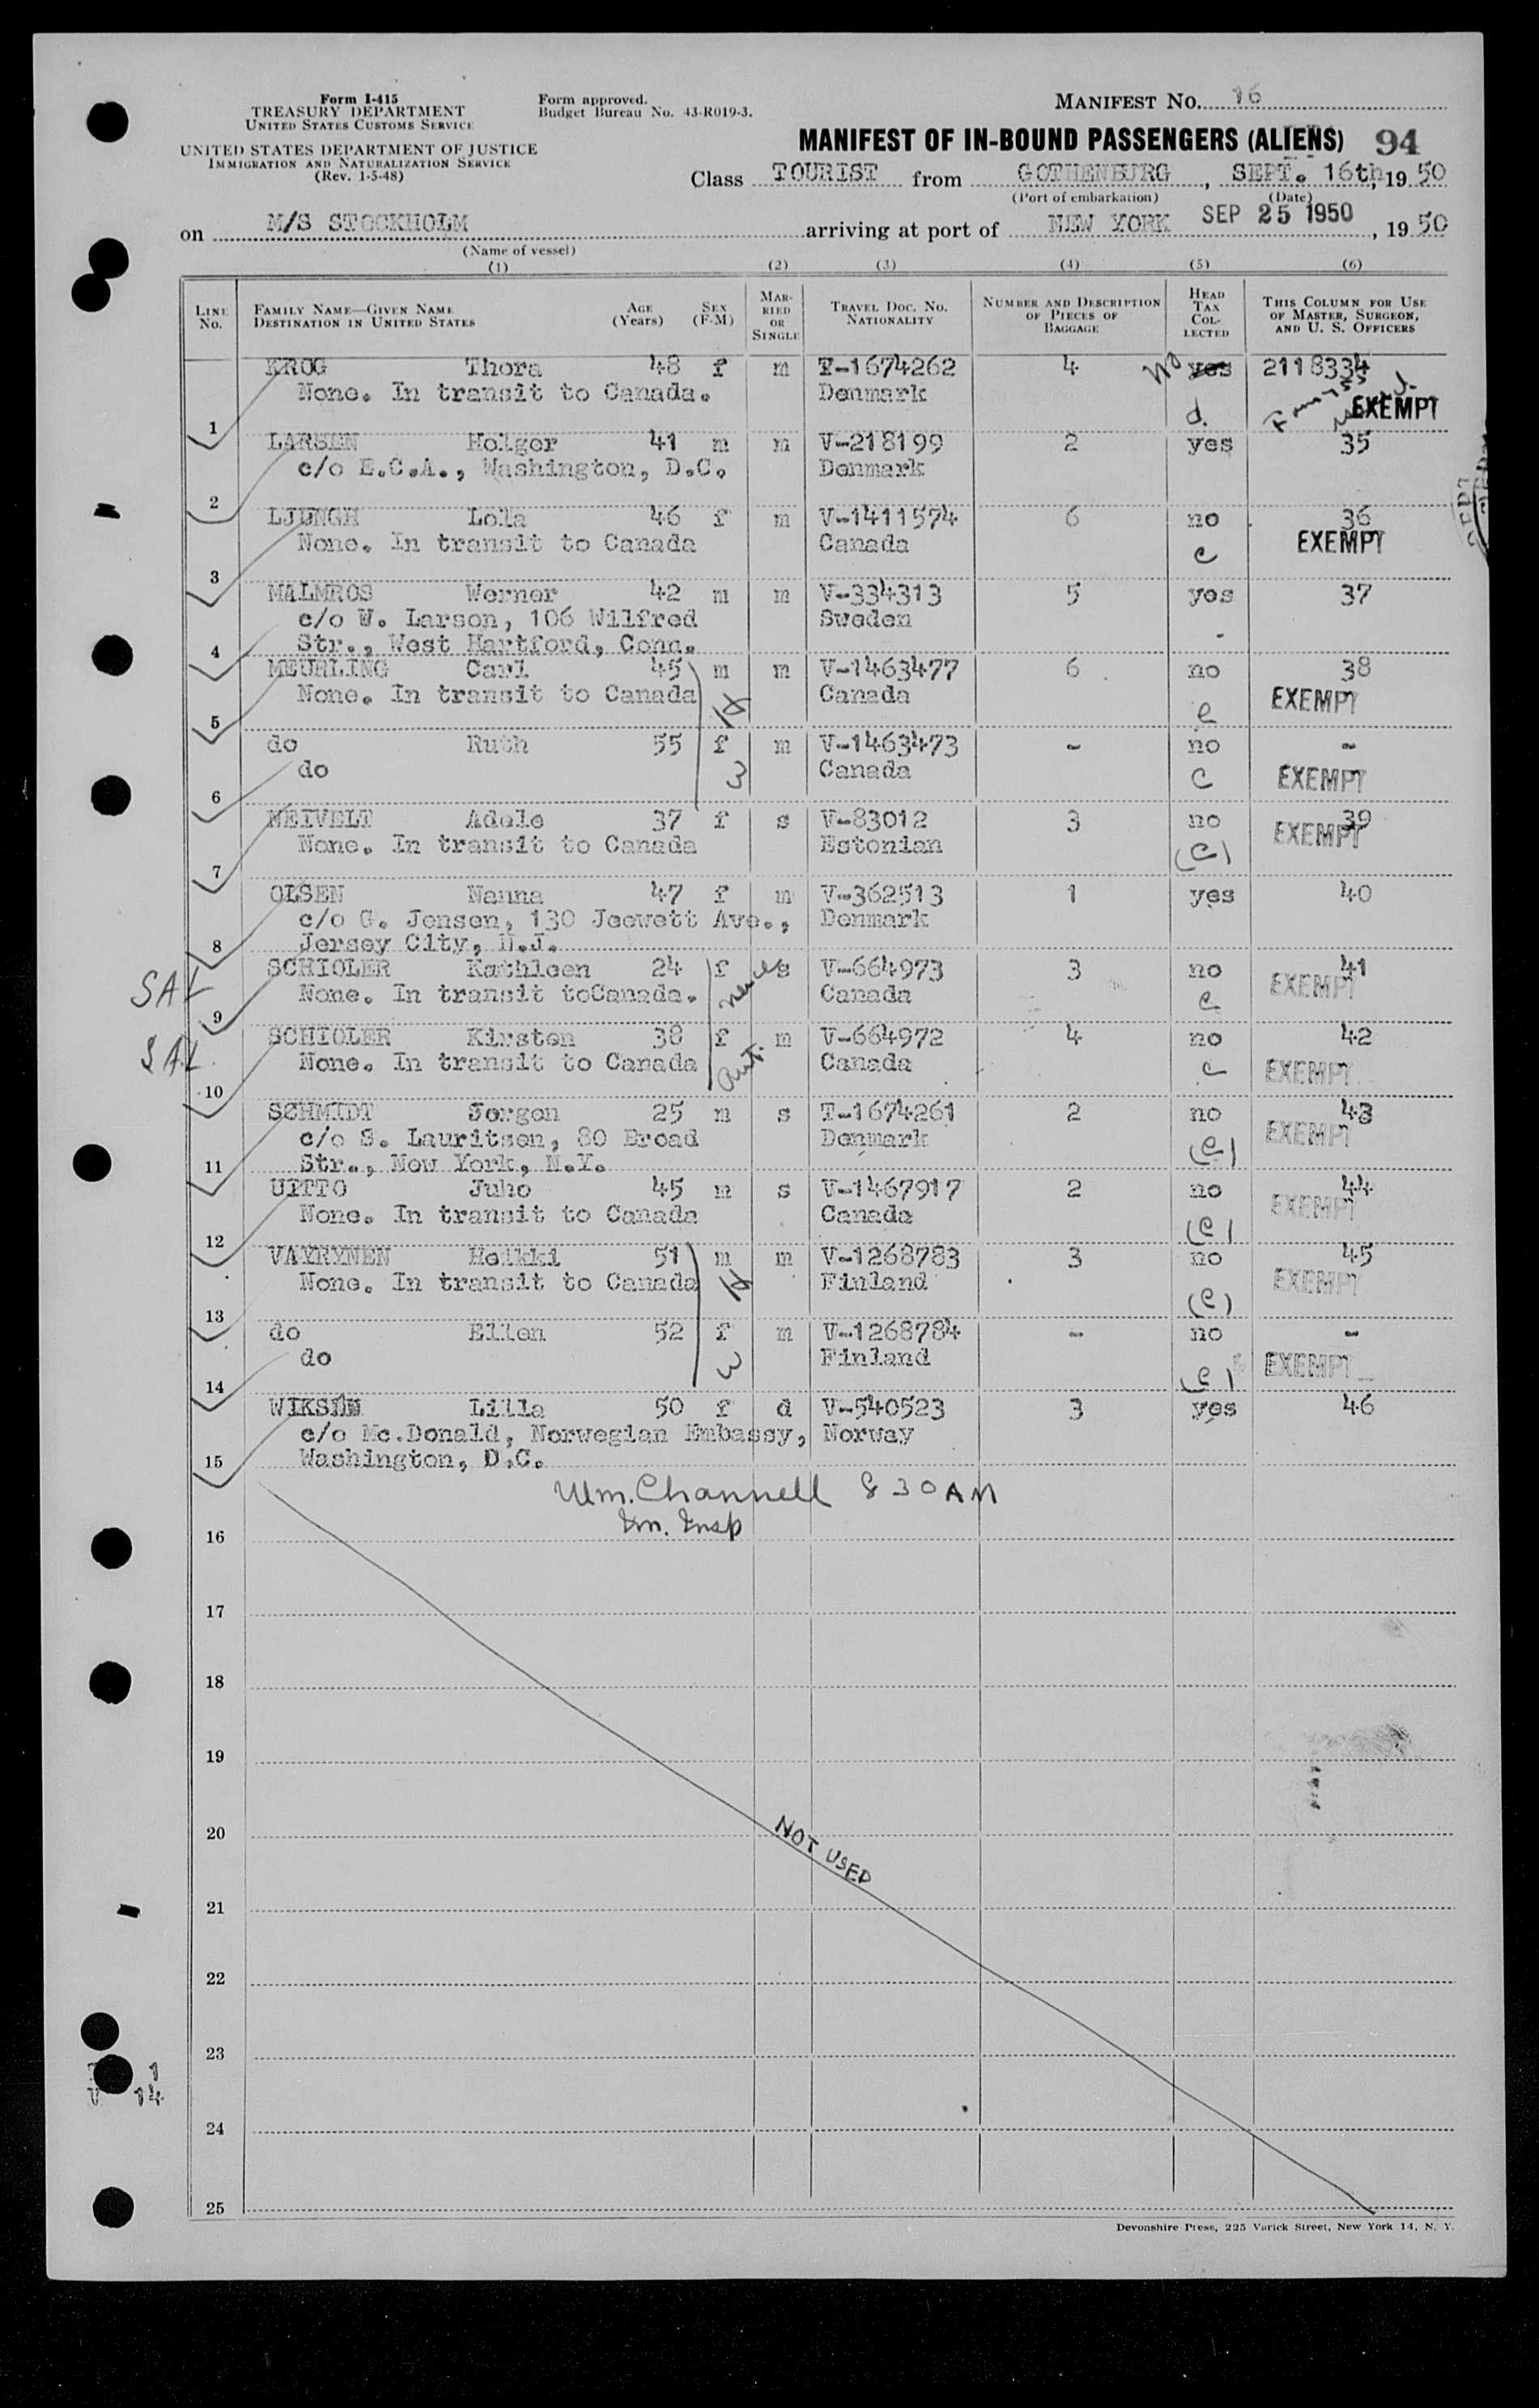 Form I-415
TREASURY DEPARTMENT
UNITED STATES CUSTOMS SERVICE
UNITED STATES DEPARTMENT OF JUSTICE
IMMIGRATION AND NATURALIZATION SERVICE
(Rev. 1-5-48)
Form approved.
Budget Bureau No. 43-R019-3.
MANIFEST NO. 16
MANIFEST OF IN-BOUND PASSENGERS (ALIENS) 94
Class TOURIST from GOTHENBURG, SEPT. 16th, 1950
(Port of embarkation) (Date)
on M/S STOCKHOLM arriving at port of NEW YORK SEP 25 1950, 1950
(Name of vessel)
(1) (2) (3) (4) (5) (6)
LINE No.
FAMILY NAME—GIVEN NAME
DESTINATION IN UNITED STATES
AGE (Years)
SEX (F-M)
MARRIED OR SINGLE
TRAVEL DOC. NO. NATIONALITY
NUMBER AND DESCRIPTION OF PIECES OF BAGGAGE
HEAD TAX COLLECTED
THIS COLUMN FOR USE OF MASTER, SURGEON, AND U. S. OFFICERS
KROG Thora 48 f m T-1674262 4 No yes 2118334
None. In transit to Canada. Denmark d. EXEMPT
1
LARSEN Holger 41 m m V-218199 2 yes 35
c/o E.C.A., Washington, D.C. Denmark
2
LJUNGH Lola 46 f m V-1411574 6 no 36
None. In transit to Canada Canada c EXEMPT
3
MALMROS Werner 42 m m V-334313 5 yes 37
c/o W. Larson, 106 Wilfred Sweden
4 Str., West Hartford, Conn.
MEURLING Carl 45 m m V-1463477 6 no 38
None. In transit to Canada H Canada e EXEMPT
5
do Ruth 55 f m V-1463473 - no -
do W Canada c EXEMPT
6
NEIVELT Adele 37 f s V-83012 3 no 39
None. In transit to Canada Estonian (c) EXEMPT
7
OLSEN Nanna 47 f m V-362513 1 yes 40
c/o G. Jensen, 130 Jeewett Ave., Denmark
8 Jersey City, N.J.
SCHIOLER Kathleen 24 f s V-664973 3 no 41
SAL None. In transit toCanada. niece Canada e EXEMPT
9
SCHIOLER Kirsten 38 f m V-664972 4 no 42
SAL. None. In transit to Canada aunt. Canada c EXEMPT
10
SCHMIDT Jorgen 25 m s T-1674261 2 no 43
c/o S. Lauritsen, 80 Broad Denmark (e) EXEMPT
11 Str., New York, N.Y.
UITTO Juho 45 m s V-1467917 2 no 44
None. In transit to Canada Canada (e) EXEMPT
12
VAYRYNEN Heikki 51 m m V-1268783 3 no 45
None. In transit to Canada H Finland (e) EXEMPT
13
do Ellen 52 f m V-1268784 - no -
do W Finland (e) EXEMPT
14
Lilla 50 f d V-540523 3 yes 46
c/o Mc.Donald, Norwegian Embassy, Norway
15 Washington, D.C.
Wm. Channell 8 30 AM
Im. Insp
16
17
18
19
20
NOT USED
21
22
23
1
14
24
25
Devonshire Press, 225 Varick Street, New York 14, N. Y.